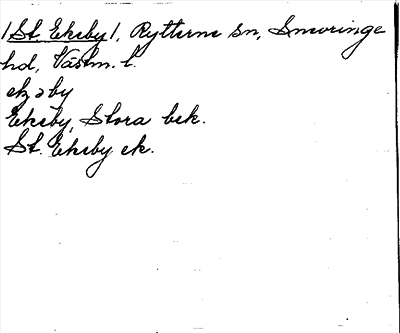 /St. Eksby/, Rytterne sn, Snevringe
hd, Västm. l.
ekʒəby
Eksby, Stora bek.
St. Eksby ek.